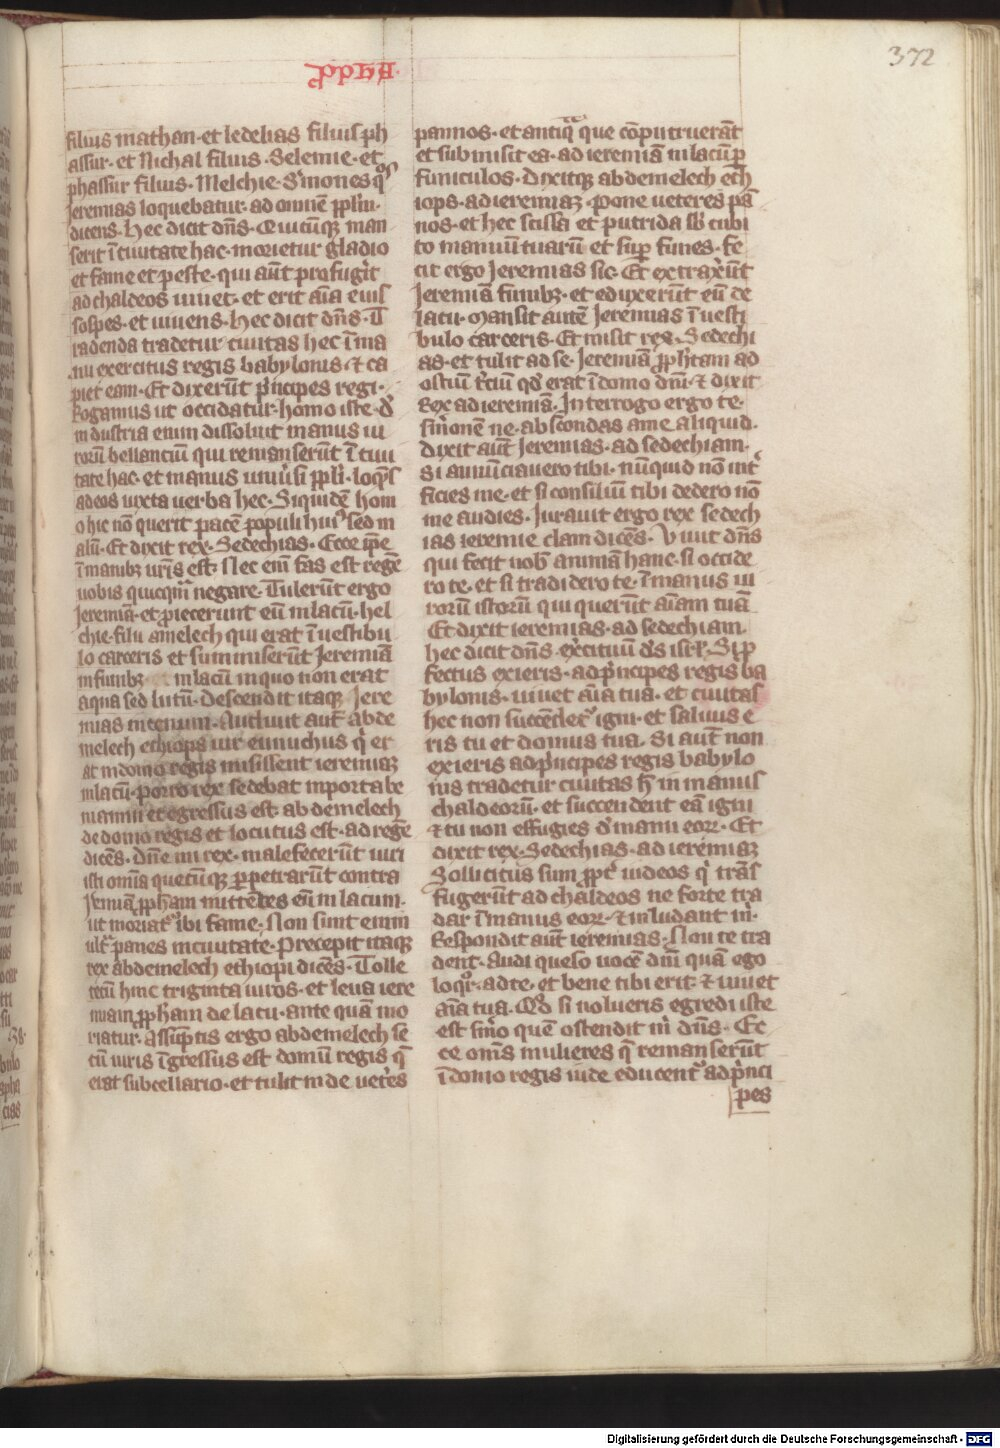 372
filius mathan · et Iedelias filius ph
assur · et Nichal filius · Selemie · et
phassur filius · Melchie · Sermones qͦs
Jeremias loquebatur · ad omnē pplm̄ ·
dicens · Hec dicit dn̄s · Quicūqꝫ man
serit ī ciuitate hac · morietur gladio
et fame et peste · qui aūt profugīt
ad chaldeos uiuet · et erit aīa eius
sospes · et uiuens · Hec dicit dn̄s · T
radenda tradetur ciuitas hec ī ma
nu exercitus regis babylonis · ⁊ ca
piet eam · Et dixerūt pͥncipes regi ·
Rogamus ut occidatur · homo iste · dͤ
industria enim dissoluit manus ui
rorū bellanciū qui remanserūt ī ciui
tate hac · et manus uniūsi ppl̄i · loqn̄s
ad eos iuxta uerba hec · Siquidē hom
o hic nō querit pacē populi huiꝰ sed m
alū · Et dixit rex · Sedechias · Ecce ip̄e
ī manibꝫ ur̄is est · Nec enī fas est regē
uobis quicqͣm negare · Tulerūt ergo
Jeremiā · et ꝓiecerunt eū in lacū · hel
chie · filii amelech qui erat ī uestibu
lo carceris et summiserūt Jeremiā
in funibꝫ in lacum in quo non erat
aqua sed lutū · Descendit itaqꝫ Jere
mias in cenum · Audiuit aut̄ abde
melech ethiops uir eunuchus qͥ er
at in domo regis misissent ieremiaꝫ
in lacū · porro rex sedebat in porta be
niamin et egressus est · abdemelech
de domo regis et locutus est · ad regē
dicēs · dn̄e mi rex · malefecerūt uiri
isti omīa quecūqꝫ ꝑpetrarūt contra
Jeremiā ꝓpham mittētes eū in lacum ·
ut moriatͬ ibi fame · Non sunt enim
ultͣ panes in ciuitate · Precepit itaqꝫ
rex abdemelech ethiopi dicēs · Tolle
tecū hinc triginta uiros · et leua iere
miam ꝓpham de lacu · ante quā mo
riatur · Assūptis ergo abdemelech se
cū uiris īgressus est domū regis qͤ
erat sub cellario · et tulit inde uetͤes
pannos · et antiqͣ que cōputruerāt
et submisit ea · ad ieremiā in lacū ꝑ
funiculos · Dixitqꝫ abdemelech eth
iops · ad ieremiaꝫ · Pone ueteres pā
nos · et hec scissa et putrida sb̄ cubi
to manuū tuarū et suꝑ funes · fe
cit ergo Jeremias sic · Et extraxͥūt
Jeremiā funibꝫ · et eduxerūt eū de
lacu · Mansit autē Jeremias ī uesti
bulo carceris · Et misit rex · Sedechi
as · et tulit ad se · Jeremiā ꝓph̄tam ad
ostiū tͥciū qd̓ erat ī domo dn̄i · ⁊ dixit
Rex ad ieremiā · Interrogo ergo te ·
sͥmonem ne · abscondas a me aliquid ·
dixit aūt Jeremias · ad sedechiam ·
Si annūciauero tibi · nūquid nō int̓
ficies me · et si consiliū tibi dedero nō
me audies · Jurauit ergo rex sedech
ias ieremie clam dicēs · Viuit dn̄s
qui fecit nob̄ animā hanc · si occide
ro te · et si tradidero te · ī manus ui
rorū istorū qui querūt aīam tuā
Et dixit ieremias · ad sedechiam ·
hec dicit dn̄s · exͤcituū dˢ isrͬl · Si ꝓ
fectus exieris · ad pͥncipes regis ba
bylonis · uiuet aīa tua · et ciuitas
hec non succendetͬ igni · et saluus e
ris tu et domus tua · Si aūt non
exieris ad pͥncipes regis babylo
nis tradetur ciuitas hͨ in manus
chaldeorū · et succendent eā igni
⁊ tu non effugies dͤ manu eoꝝ · Et
dixit rex · Sedechias · ad ieremiaꝫ
Sollicitus sum ꝓptͬ iudeos qͥ trās
fugerūt ad chaldeos ne forte tra
dar ī manus eoꝝ · ⁊ inludant mͥ ·
Respondit aūt ieremias · Non te tra
dent · Audi queso uocē dn̄i quā ego
loqͦr · ad te · et bene tibi erit · ⁊ uiuet
aīa tua · Qd̓ si nolueris egredi iste
est sͥmo quē ostendit mͥ dn̄s · Ec
ce om̄s mulieres qͤ remanserūt
ī domo regis iude educentͬ ad pͥnci
pes
Digitalisierung gefördert durch die Deutsche Forschungsgemeinschaft - DFG